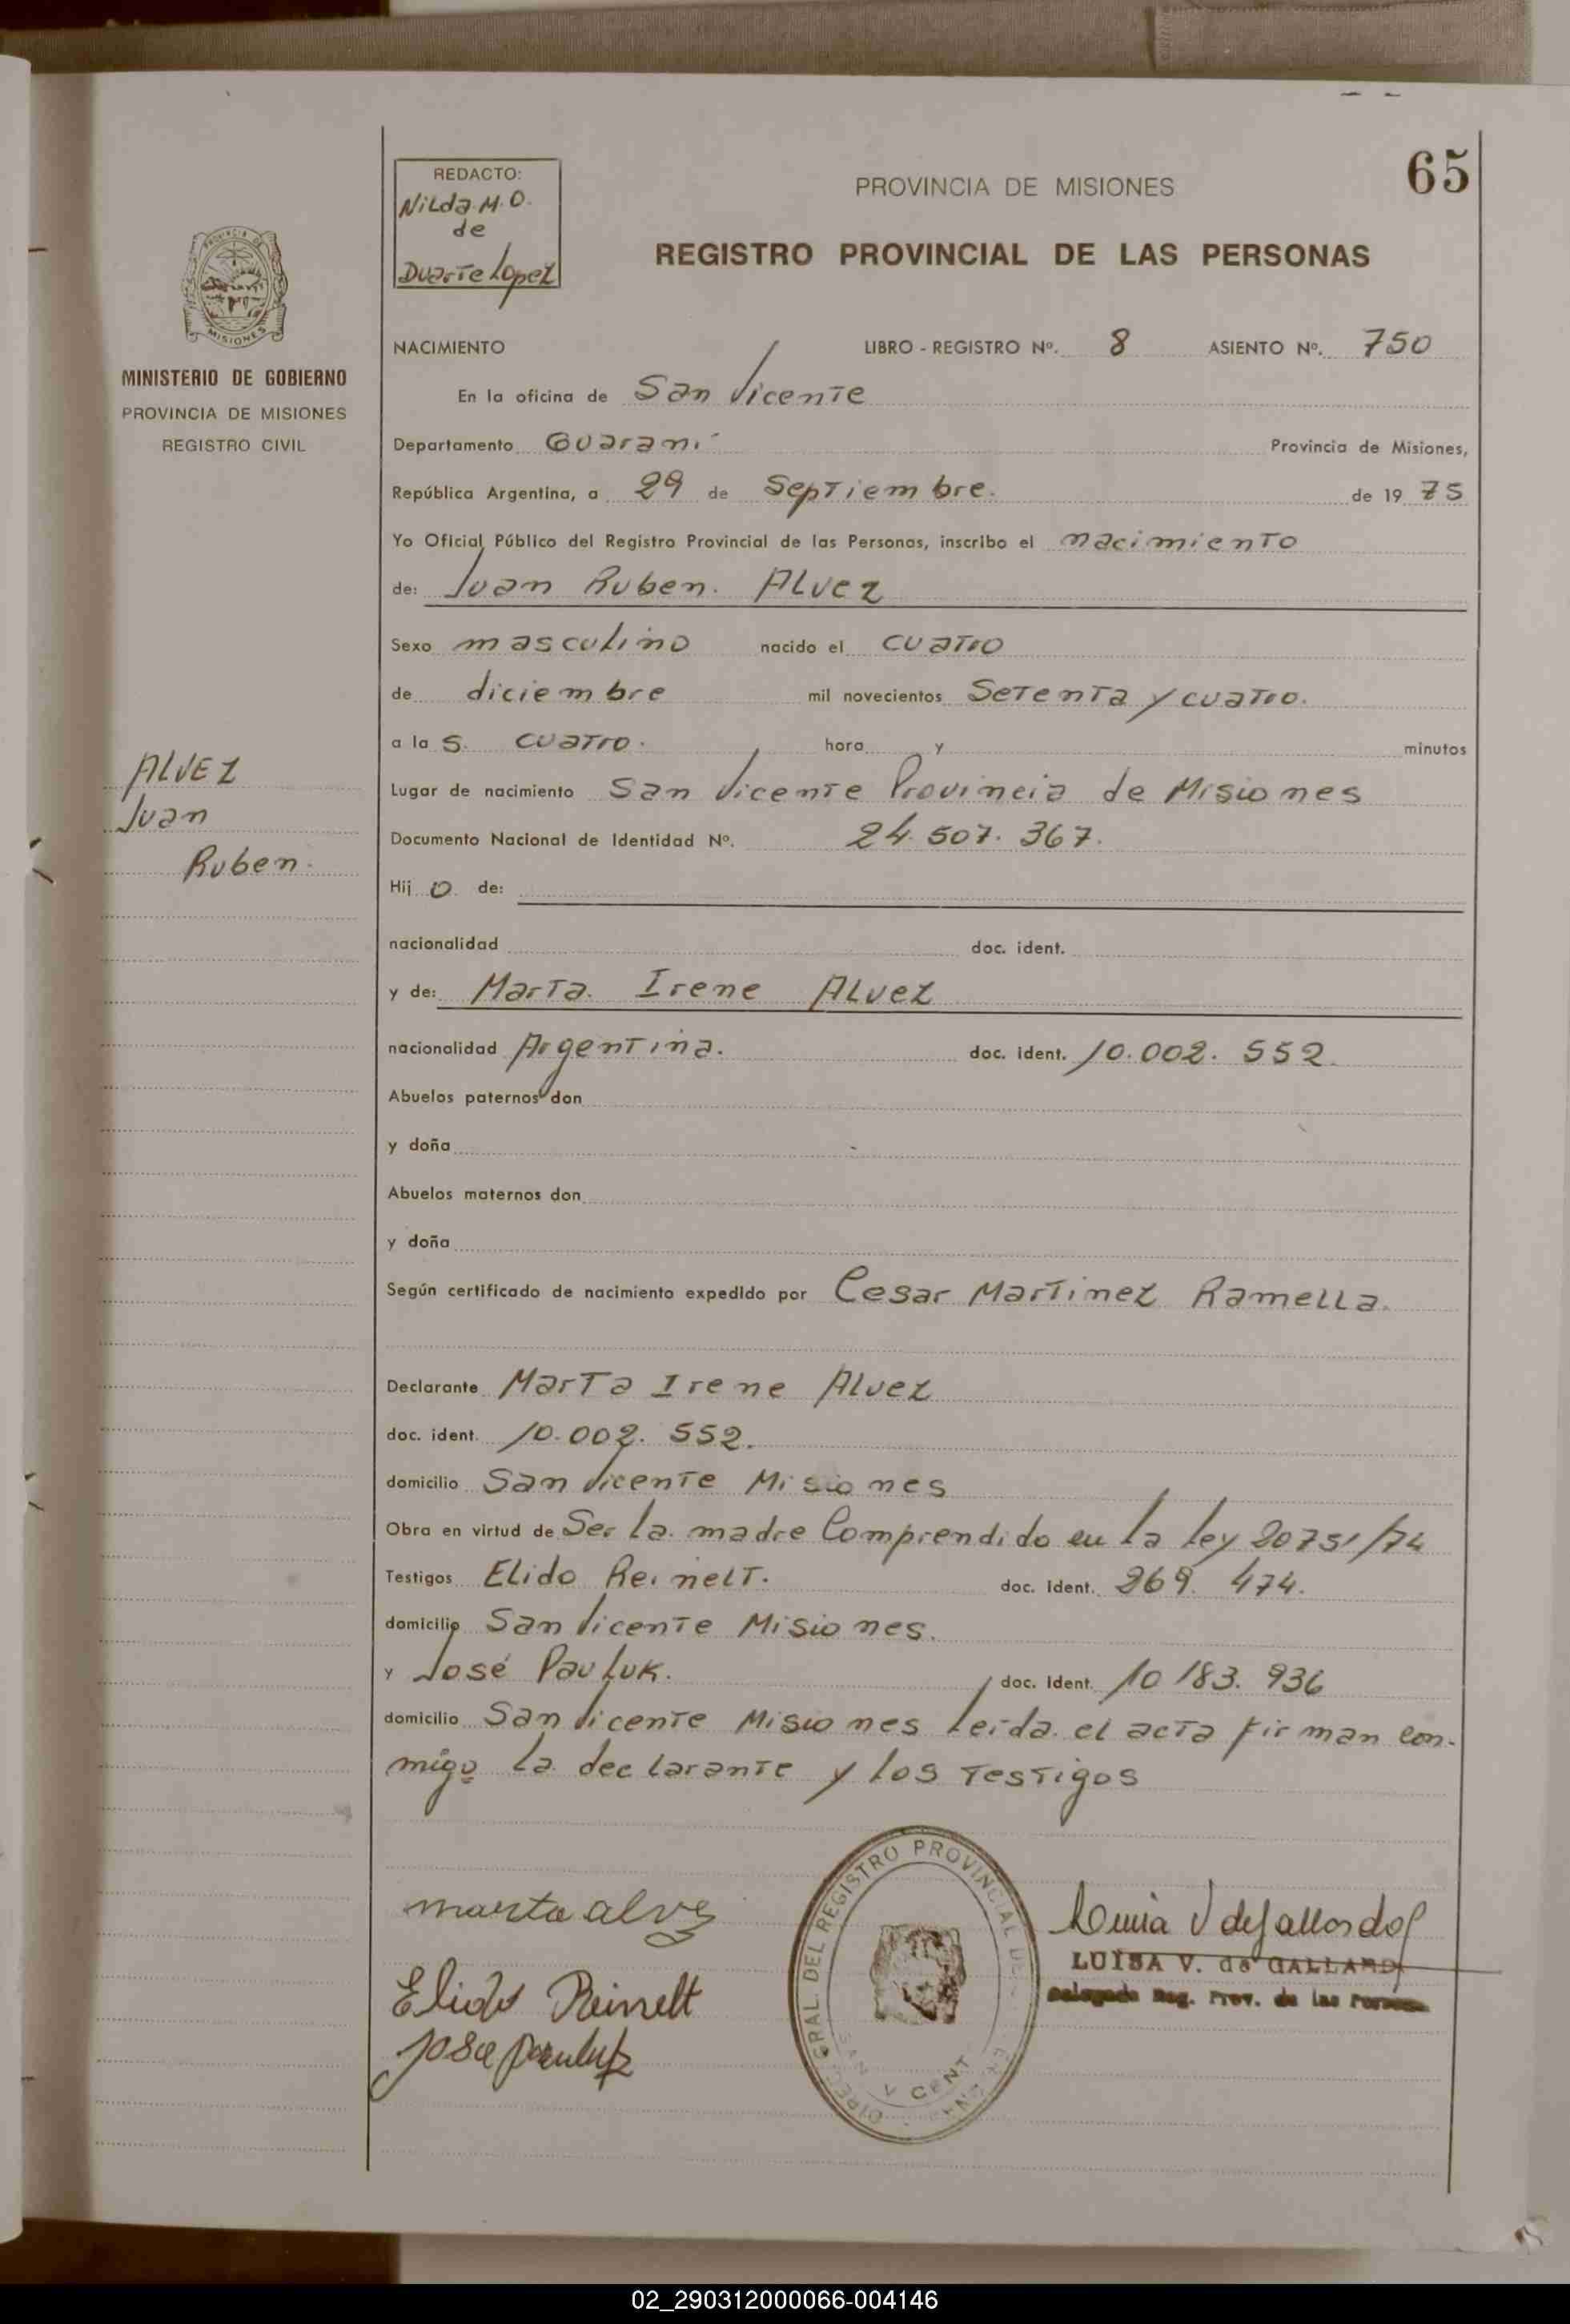 65
REDACTO:
Nilda M. O.
de
Duarte Lopez
PROVINCIA DE MISIONES
REGISTRO PROVINCIAL DE LAS PERSONAS
PROVINCIA DE
MISIONES
MINISTERIO DE GOBIERNO
PROVINCIA DE MISIONES
REGISTRO CIVIL
NACIMIENTO LIBRO - REGISTRO Nº. 8 ASIENTO Nº. 750
En la oficina de San Vicente
Departamento Guaraní Provincia de Misiones,
República Argentina, a 29 de Septiembre. de 19 75
Yo Oficial Público del Registro Provincial de las Personas, inscribo el nacimiento
de: Juan Ruben. Alvez
Sexo masculino nacido el cuatro
de diciembre mil novecientos Setenta y cuatro.
a la s. cuatro. hora y minutos
ALVEZ
Juan
Ruben.
Lugar de nacimiento San Vicente Provincia de Misiones
Documento Nacional de Identidad Nº. 24.507.367.
Hij o. de:
nacionalidad doc. ident.
y de: Marta. Irene Alvez
nacionalidad Argentina. doc. ident. 10.002.552.
Abuelos paternos don
y doña
Abuelos maternos don
y doña
Según certificado de nacimiento expedido por Cesar Martinez Ramella.
Declarante Marta Irene Alvez
doc. ident. 10.002.552.
domicilio San Vicente Misiones
Obra en virtud de Ser la madre Comprendido en la ley 20751/74
Testigos Elido Reinelt. doc. ident. 269.474.
domicilio San Vicente Misiones.
y José Pauluk. doc. ident. 10 183.936
domicilio San Vicente Misiones leida el acta firman con-
migo la declarante y los testigos
marta alvez
Elido Reinelt
Jose Pauluk
DIREC. GRAL. DEL REGISTRO PROVINCIAL DE
SAN VICENT
Luisa V de Gallardo
LUISA V. de GALLARDO
Delegada Reg. Prov. de las Personas
02_290312000066-004146